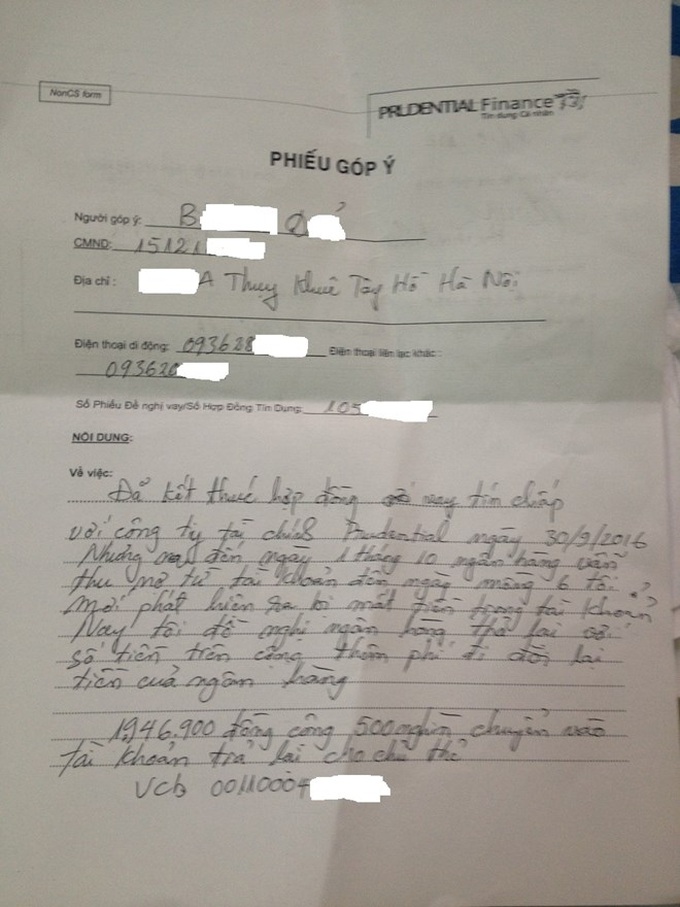 NonCS form
PRUDENTIAL Finance
Tín dụng Cá nhân
PHIẾU GÓP Ý
Người góp ý: B Q
CMND: 15121
Địa chỉ : A Thụy Khuê Tây Hồ Hà Nội
Điện thoại di động: 093628 Điện thoại liên lạc khác :
093620
Số Phiếu Đề nghị vay/Số Hợp Đồng Tín Dụng: 105
NỘI DUNG:
Về việc:
Đã kết thúc hợp đồng vay tín chấp
với công ty tài chính Prudential ngày 30/9/2016
Nhưng đến ngày 1 tháng 10 ngân hàng vẫn
thu nợ từ tài khoản đến ngày mồng 6 tôi
mới phát hiện ra bị mất tiền trong tài khoản
Nay tôi đề nghị ngân hàng trả lại với
số tiền trên cộng thêm phí đi đòi lại
tiền của ngân hàng
1,946.900 đồng cộng 500 nghìn chuyển vào
tài khoản trả lại cho chủ thẻ
Vcb 00110004